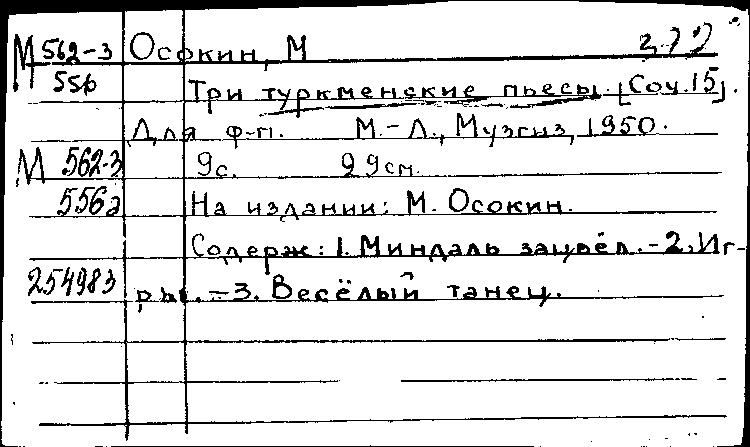 М 562-3 Осокин, М
556 Три туркменские пьесы. [Соч.15].
Для ф-п. М.-Л., Музгиз, 1950.
М 562-3 9с. 29см.
556а На издании: М. Осокин.
Содерж: 1. Миндаль зацвёл. -2. Иг-
254983 ры. -3. Весёлый танец.